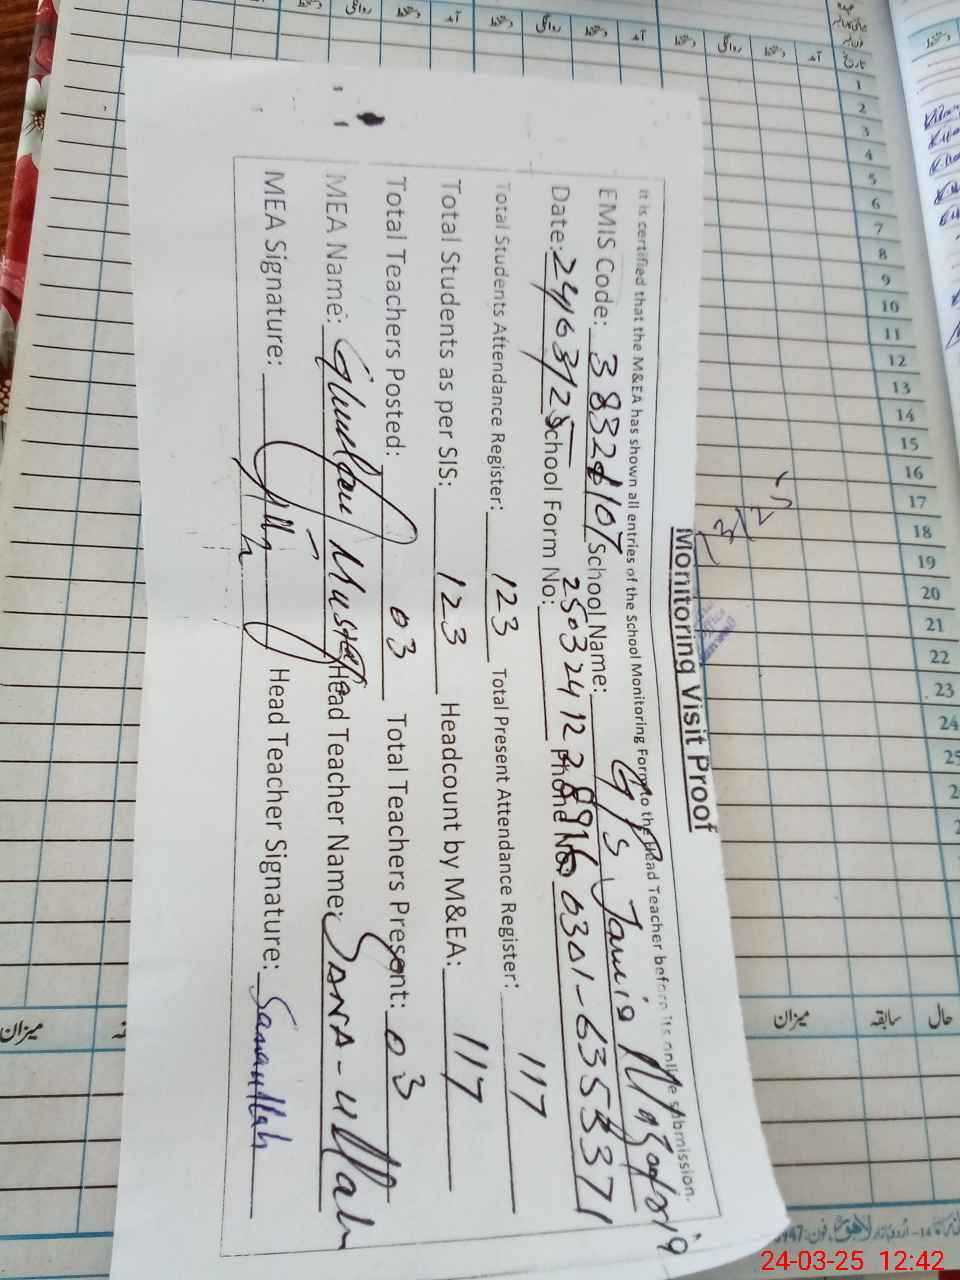 Monitoring Visit Proof
It is certified that the M&EA has shown all entries of the School Monitoring Form to the Head Teacher before its online submission.
EMIS Code: 38321107 School Name: GPS Jamia
Date: 24/03/25 School Form No: 2503241228916 Phone No: 0301-6353371
Total Students Attendance Register: 123 Total Present Attendance Register: 117
Total Students as per SIS: 123 Headcount by M&EA: 117
Total Teachers Posted: 03 Total Teachers Present: 03
MEA Name: Ghulam Mustafa Head Teacher Name: SANA-Ullah
MEA Signature: Head Teacher Signature: Sanaullah
1
2
3
4
5
6
7
8
9
10
11
12
13
14
15
16
17
18
19
20
21
22
23
24
25
میزان
سابقہ
حال
میزان
24-03-25 12:42